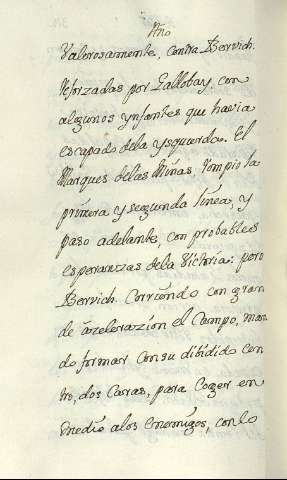 Año
Valerosamente, contra Bervich.
Reforzadas por Gallobay, con
algunos ynfantes que havia
escapado dela ysquerda. El
Marques delas Minas, rompio la
primera y segunda linea, y
paso adelante, con probables
esperanzas dela Victoria: pero
Bervich. Corriendo con gran
de azelerazion el Campo, man
do formar con su dibidido cen
tro, dos Caras, para Coger en
medio alos enemigos, con lo